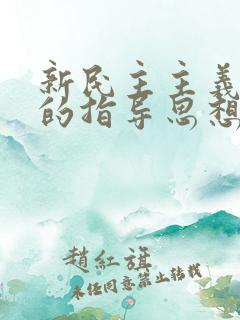 新民主主義
的指导思想
趙紅旗
未经同意禁止转载